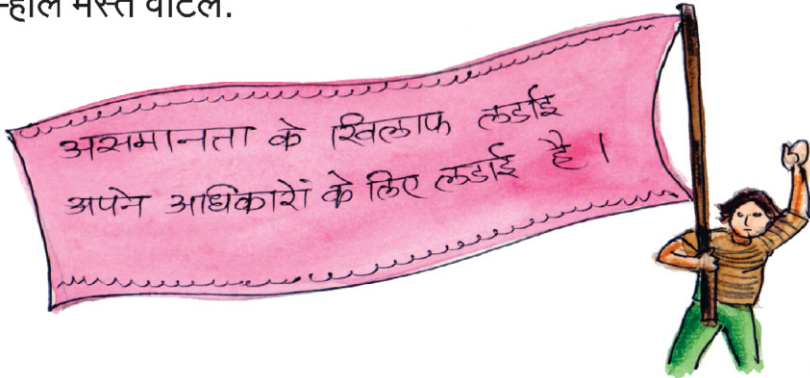 -हाल मस्त वाटल.
असमानता के खिलाफ लडाई
अपने अधिकारों के लिए लडाई है।